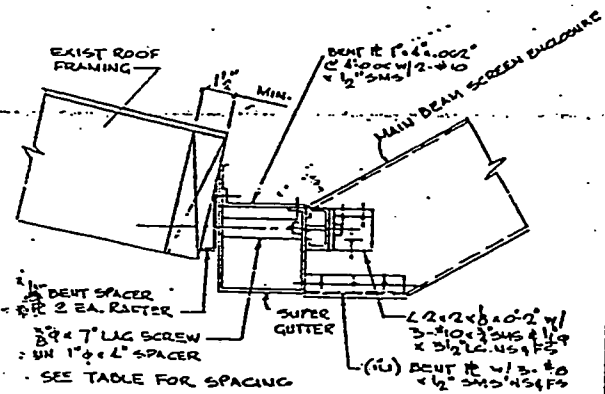 EXIST ROOF
FRAMING
1½"
MIN.
BENT PL
W/2-#10
x ½" SMS
MAIN BEAM SCREEN ENCLOSURE
BENT SPACER
2 EA. RAFTER
⅜"φ x 7" LAG SCREW
1"φ x 4" SPACER
SEE TABLE FOR SPACING
SUPER
GUTTER
L 2 x 2 x ⅛ x 0-2" W/
3-#10 x ¾" SMS &
x 3½" LG. NS & FS
BENT PL W/ 3-#8
x ½" SMS NS & FS